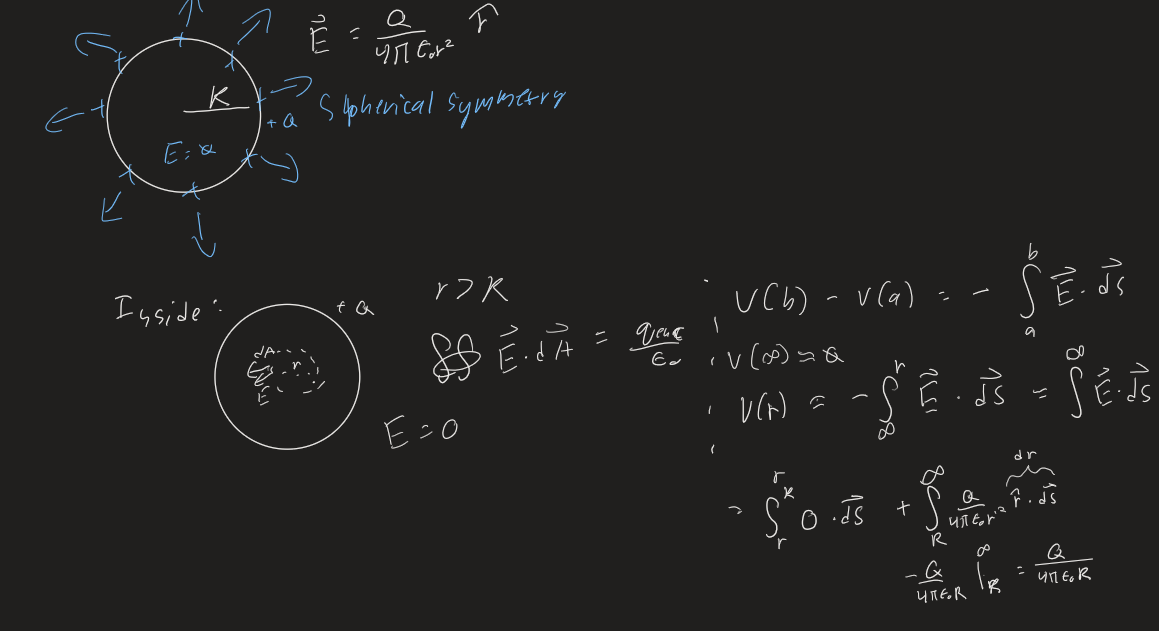 E⃗ = Q / 4πε₀r² r̂
R
+Q
Spherical symmetry
E=0
Inside:
+Q
dA
r
E
r > R
∯ E⃗ · dA⃗ = qenc / ε₀
E = 0
V(b) - V(a) = - ∫ₐᵇ E⃗ · ds⃗
V(∞) = 0
V(r) = - ∫_∞^r E⃗ · ds⃗ = ∫^∞ E⃗ · ds⃗
dr
= ∫_r^R 0 · ds⃗ + ∫_R^∞ Q / 4πε₀r² r̂ · ds⃗
-Q / 4πε₀R |_R^∞ = Q / 4πε₀R